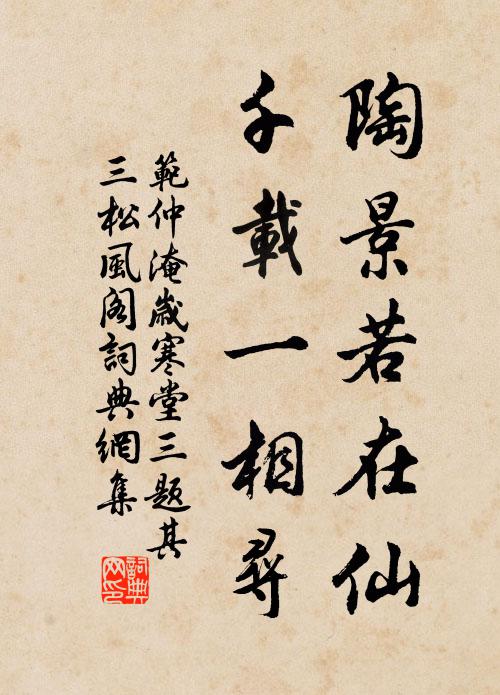 陶景若在仙
千載一相尋
範仲淹歲寒堂三題其
三松風閣詞典網集
詞典
网印